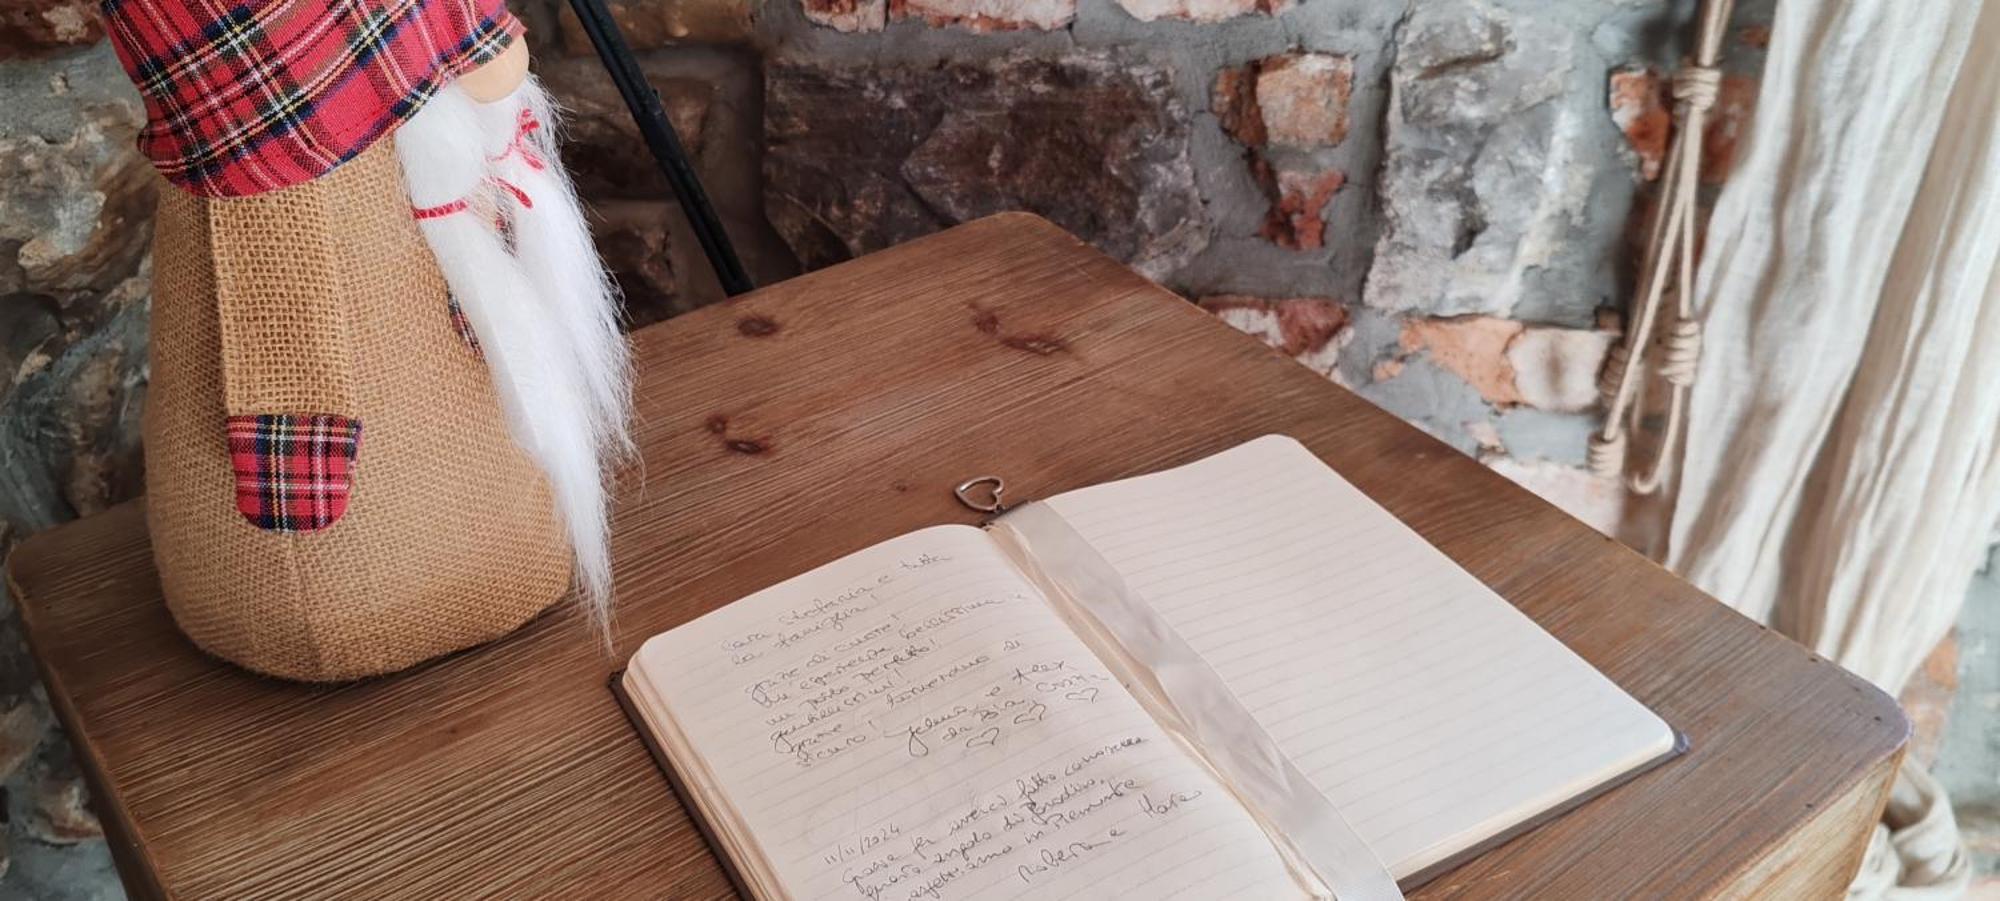 Cara Stefania e tutta
la famiglia!
grazie di cuore!
Un esperienza bellissima e
un posto perfetto!
gentilissimi!
grazie! Torneremo di
sicuro! Jelena e Alex
da Pia
11/11/2024
Grazie per averci fatto conoscere
questo angolo di Paradiso,
aspettiamo in Piemonte
Roberta e